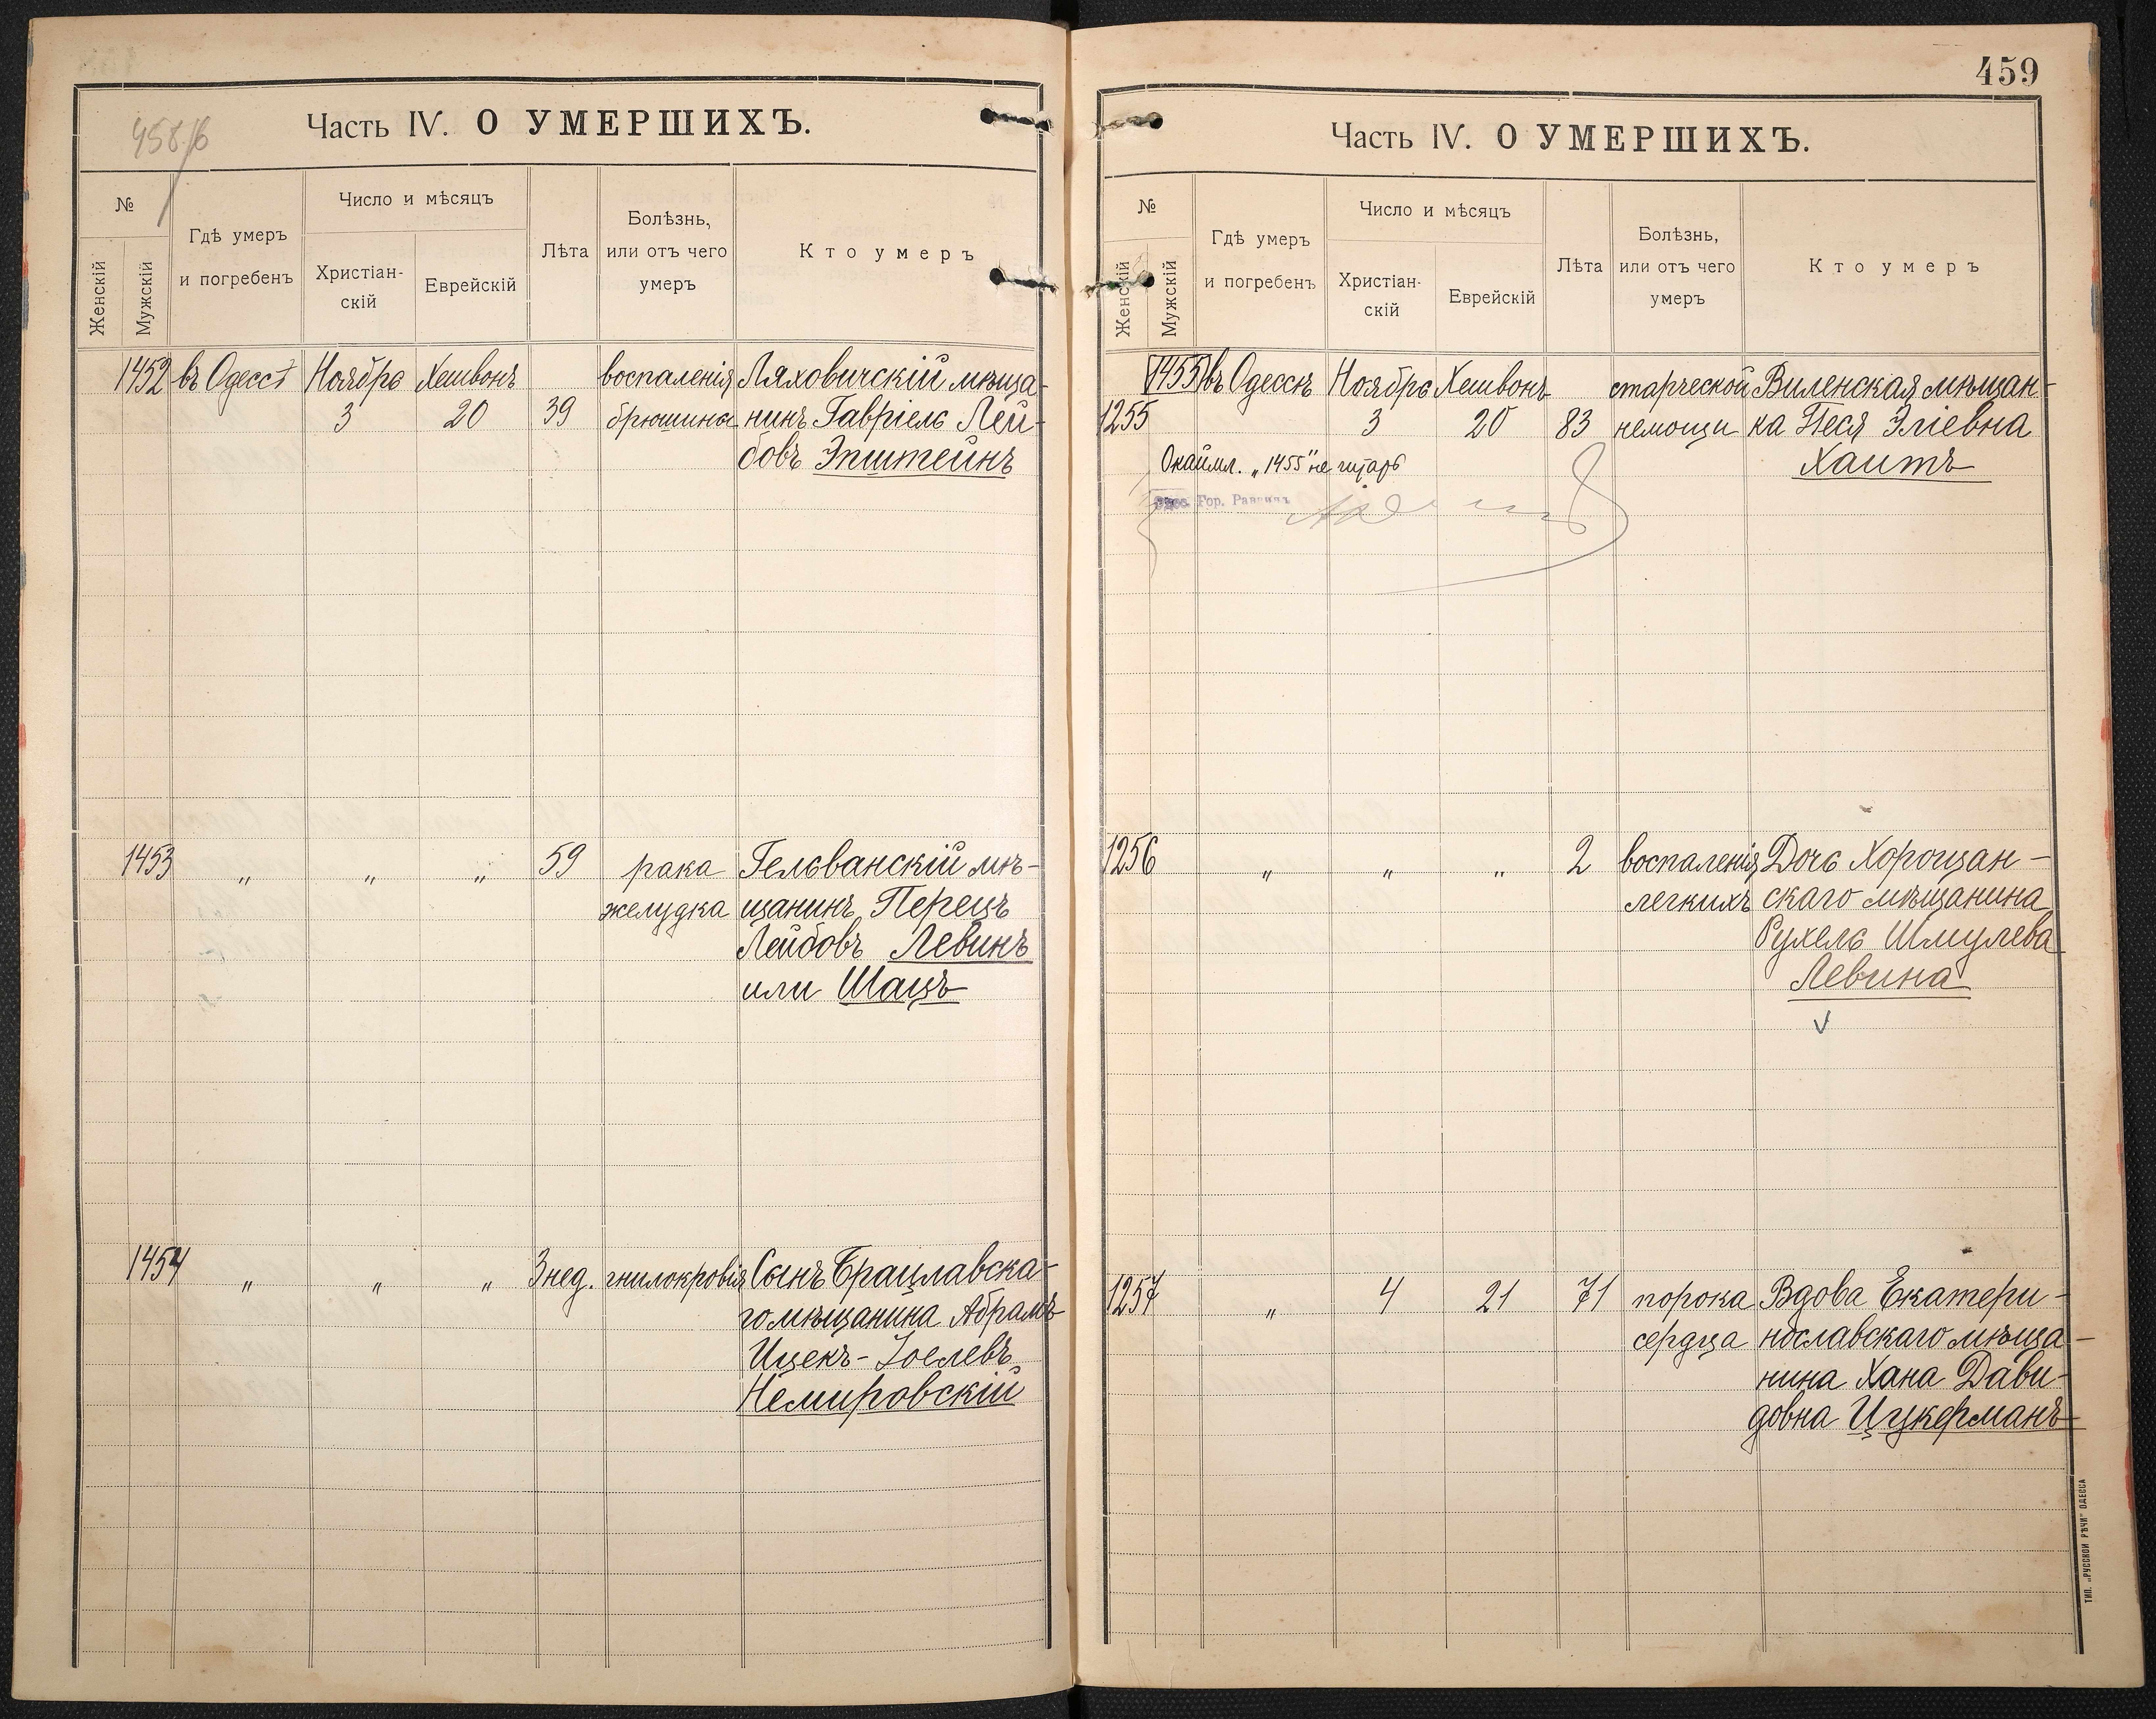 458/б
Часть IV. О УМЕРШИХЪ.
№
Женскій
Мужскій
Гдѣ умеръ
и погребенъ
Число и мѣсяцъ
Христіан-
скій
Еврейскій
Лѣта
Болѣзнь,
или отъ чего
умеръ
Кто умеръ
1452 въ Одессѣ Ноябрь Хешвонъ воспаленія Ляховичскій мѣща-
3 20 39 брюшины нинъ Гавріель Лей-
бовъ Эпштейнъ
1453 „ „ „ 59 рака Гельванскій мѣ-
желудка щанинъ Перецъ
Лейбовъ Левинъ
или Шацъ
1454 „ „ „ 3 нед. гнилокровія Сынъ Брацлавска-
го мѣщанина Абрамъ
Ицекъ-Іоелевъ
Немировскій
459
Часть IV. О УМЕРШИХЪ.
№
Женскій
Мужскій
Гдѣ умеръ
и погребенъ
Число и мѣсяцъ
Христіан-
скій
Еврейскій
Лѣта
Болѣзнь,
или отъ чего
умеръ
Кто умеръ
1455 въ Одессѣ Ноябрь Хешвонъ старческой Виленская мѣщан-
1255 3 20 83 немощи ка Песя Эліевна
Окаймл. „1455" не читать Хаитъ
Гор. Раввинъ
1256 „ „ „ 2 воспаленія Дочь Хорощан-
легкихъ скаго мѣщанина
Рухель Шмулева
Левина
1257 „ 4 21 71 порока Вдова Екатери-
сердца нославскаго мѣща-
нина Хана Дави-
довна Цукерманъ
ТИП. „РУССКОЙ РѢЧИ" ОДЕССА